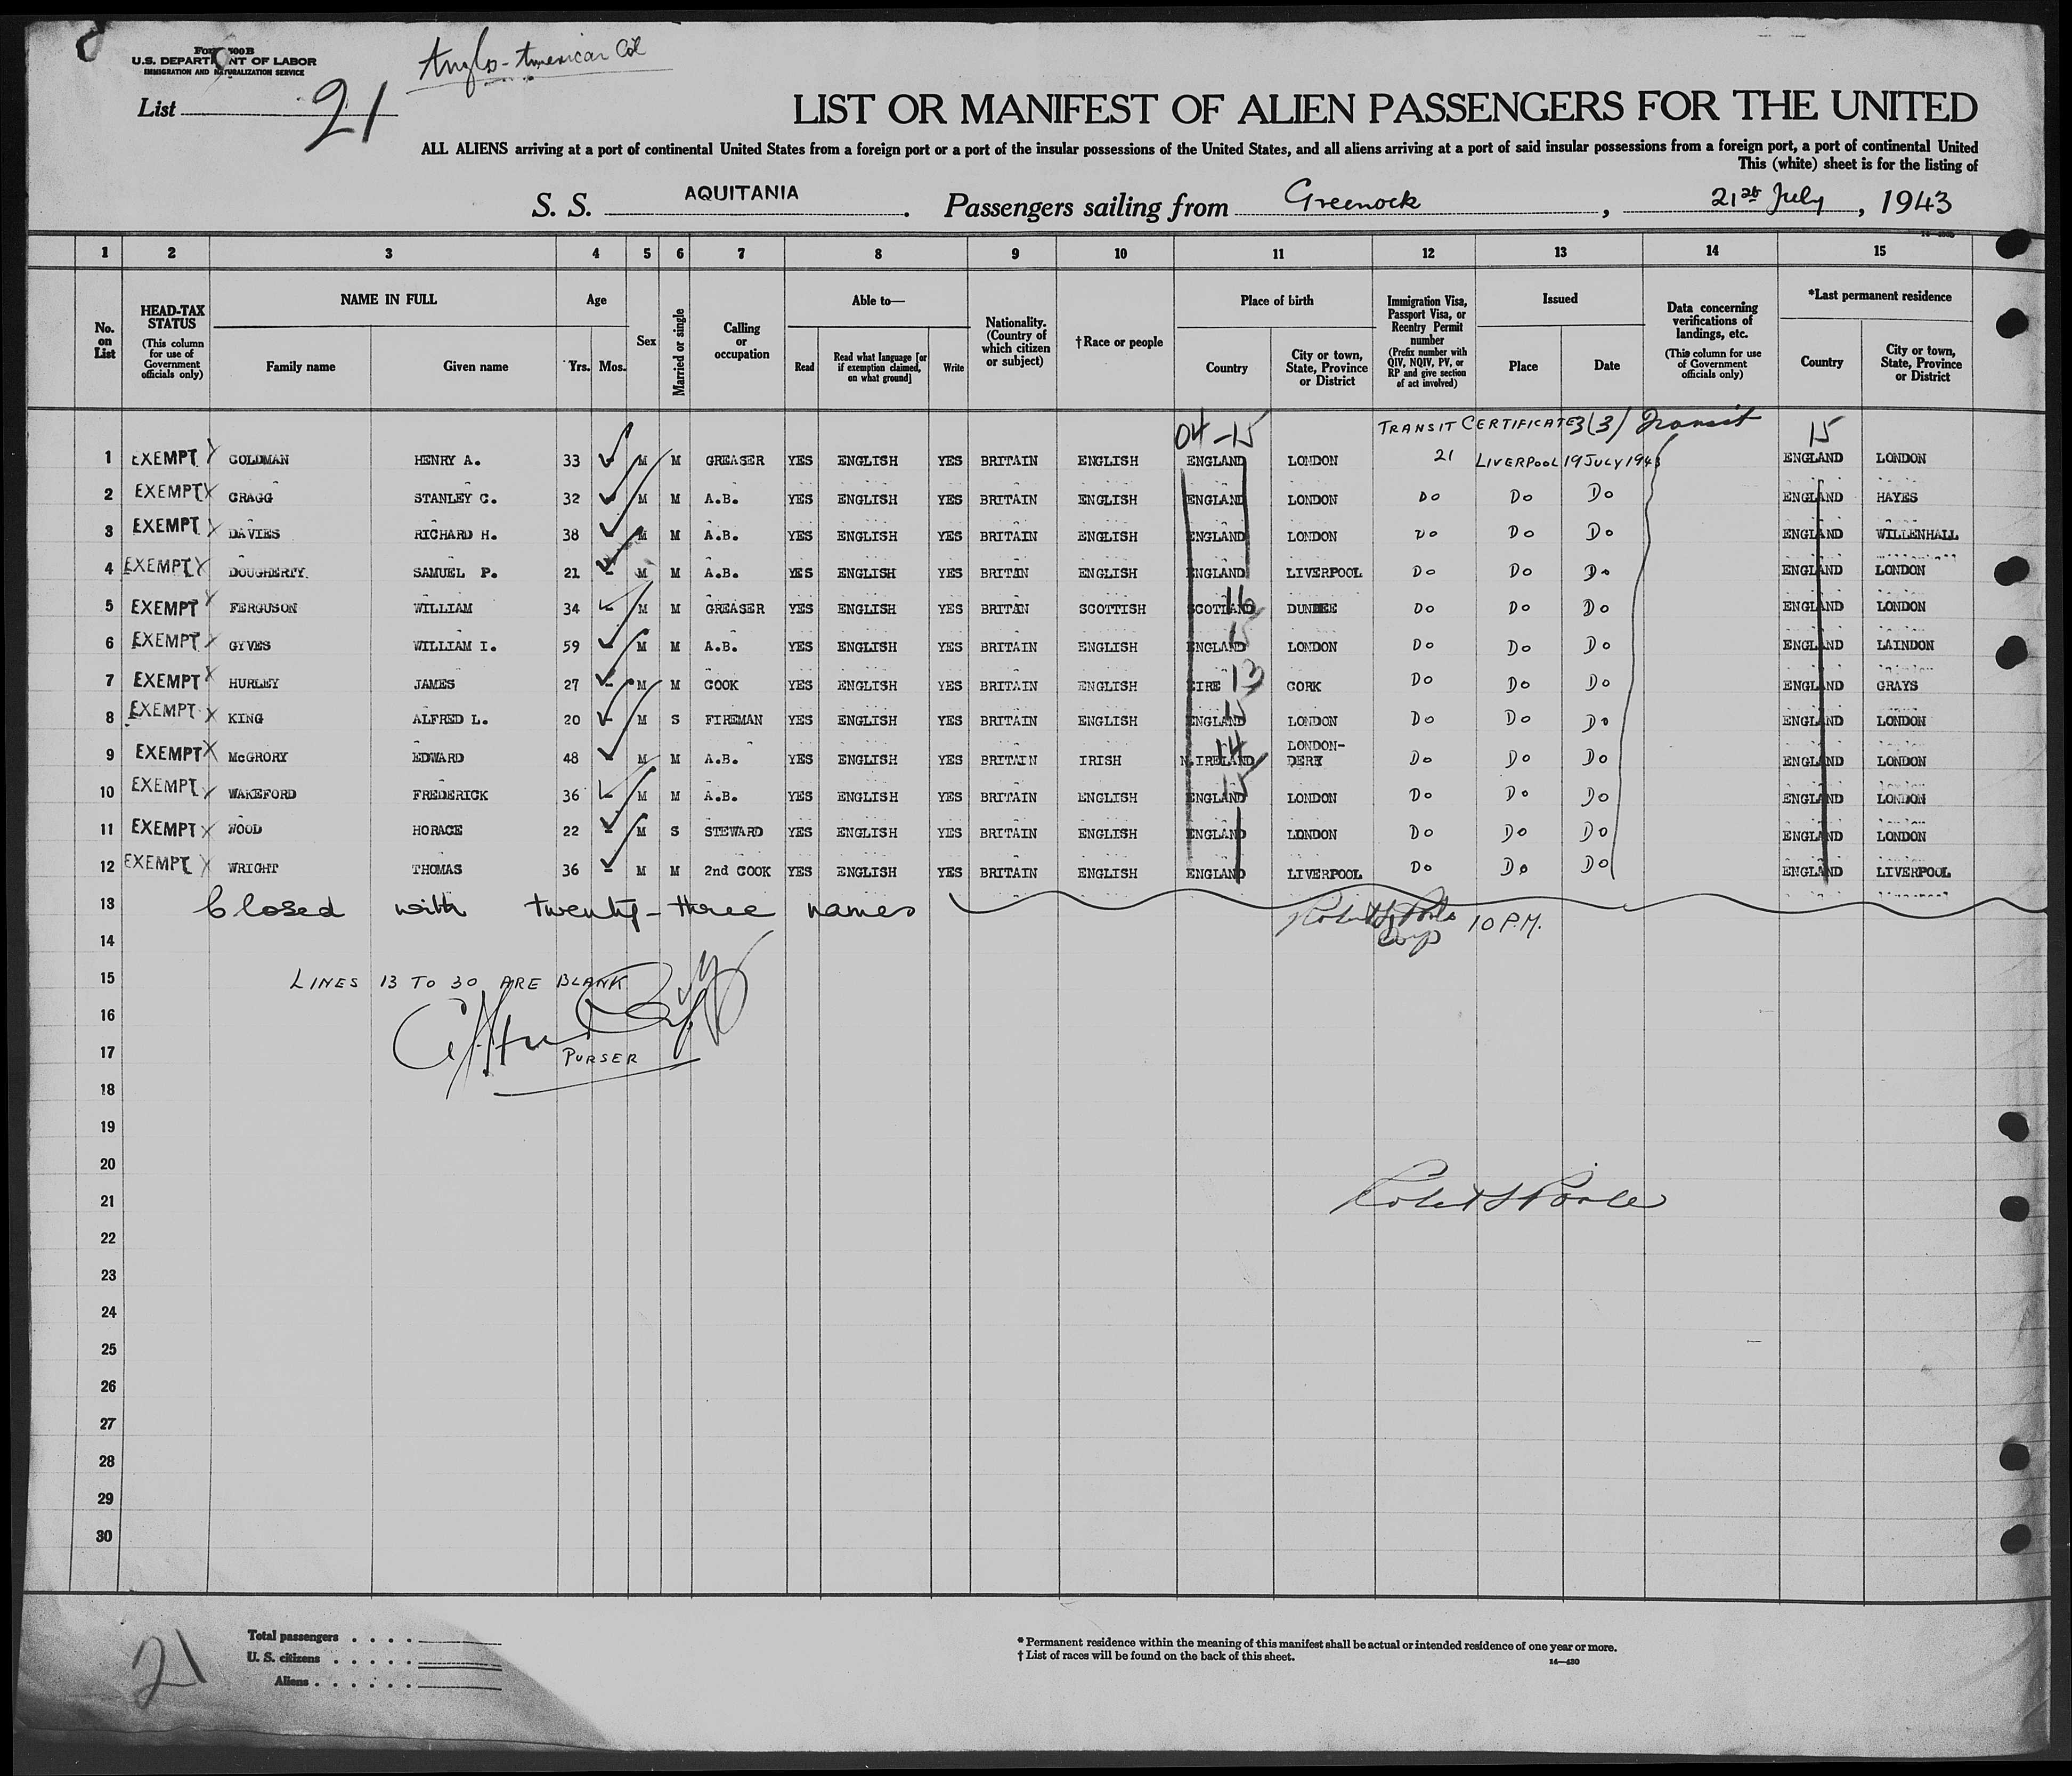 Form 500B
U.S. DEPARTMENT OF LABOR
IMMIGRATION AND NATURALIZATION SERVICE
Anglo-American Col
List 21
LIST OR MANIFEST OF ALIEN PASSENGERS FOR THE UNITED
ALL ALIENS arriving at a port of continental United States from a foreign port or a port of the insular possessions of the United States, and all aliens arriving at a port of said insular possessions from a foreign port, a port of continental United
This (white) sheet is for the listing of
S. S. AQUITANIA. Passengers sailing from Greenock, 21st July, 1943
1 2 3 4 5 6 7 8 9 10 11 12 13 14 15
No. on List
HEAD-TAX STATUS (This column for use of Government officials only)
NAME IN FULL Family name Given name
Age Yrs. Mos.
Sex
Married or single
Calling or occupation
Able to— Read Read what language [or if exemption claimed, on what ground] Write
Nationality. (Country of which citizen or subject)
†Race or people
Place of birth Country City or town, State, Province or District
Immigration Visa, Passport Visa, or Reentry Permit number (Prefix number with QIV, NQIV, PV, or RP and give section of act involved)
Issued Place Date
Data concerning verifications of landings, etc. (This column for use of Government officials only)
*Last permanent residence Country City or town, State, Province or District
04-15 TRANSIT CERTIFICATE 3(3) Transit 15
1 EXEMPT GOLDMAN HENRY A. 33 M M GREASER YES ENGLISH YES BRITAIN ENGLISH ENGLAND LONDON 21 LIVERPOOL 19 JULY 1943 ENGLAND LONDON
2 EXEMPT CRAGG STANLEY C. 32 M M A.B. YES ENGLISH YES BRITAIN ENGLISH ENGLAND LONDON Do Do Do ENGLAND HAYES
3 EXEMPT DAVIES RICHARD H. 38 M M A.B. YES ENGLISH YES BRITAIN ENGLISH ENGLAND LONDON Do Do Do ENGLAND WILLENHALL
4 EXEMPT DOUGHERTY. SAMUEL P. 21 M M A.B. YES ENGLISH YES BRITAN ENGLISH ENGLAND LIVERPOOL Do Do Do ENGLAND LONDON
5 EXEMPT FERGUSON WILLIAM 34 M M GREASER YES ENGLISH YES BRITAN SCOTTISH SCOTLAND 16 DUNDEE Do Do Do ENGLAND LONDON
6 EXEMPT GYVES WILLIAM I. 59 M M A.B. YES ENGLISH YES BRITAIN ENGLISH ENGLAND 15 LONDON Do Do Do ENGLAND LAINDON
7 EXEMPT HURLEY JAMES 27 M M COOK YES ENGLISH YES BRITAIN ENGLISH EIRE 13 CORK Do Do Do ENGLAND GRAYS
8 EXEMPT KING ALFRED L. 20 M S FIREMAN YES ENGLISH YES BRITAIN ENGLISH ENGLAND 15 LONDON Do Do Do ENGLAND LONDON
9 EXEMPT McGRORY EDWARD 48 M M A.B. YES ENGLISH YES BRITAIN IRISH N.IRELAND 14 LONDON-DERRY Do Do Do ENGLAND LONDON
10 EXEMPT WAKEFORD FREDERICK 36 M M A.B. YES ENGLISH YES BRITAIN ENGLISH ENGLAND 15 LONDON Do Do Do ENGLAND LONDON
11 EXEMPT WOOD HORACE 22 M S STEWARD YES ENGLISH YES BRITAIN ENGLISH ENGLAND LONDON Do Do Do ENGLAND LONDON
12 EXEMPT WRIGHT THOMAS 36 M M 2nd COOK YES ENGLISH YES BRITAIN ENGLISH ENGLAND LIVERPOOL Do Do Do ENGLAND LIVERPOOL
13 Closed with twenty-three names 10 P.M.
14
15 LINES 13 TO 30 ARE BLANK
16
17 PURSER
18
19
20
21 Robert S Poole
22
23
24
25
26
27
28
29
30
21
Total passengers
U. S. citizens
Aliens
* Permanent residence within the meaning of this manifest shall be actual or intended residence of one year or more.
† List of races will be found on the back of this sheet.
14—430